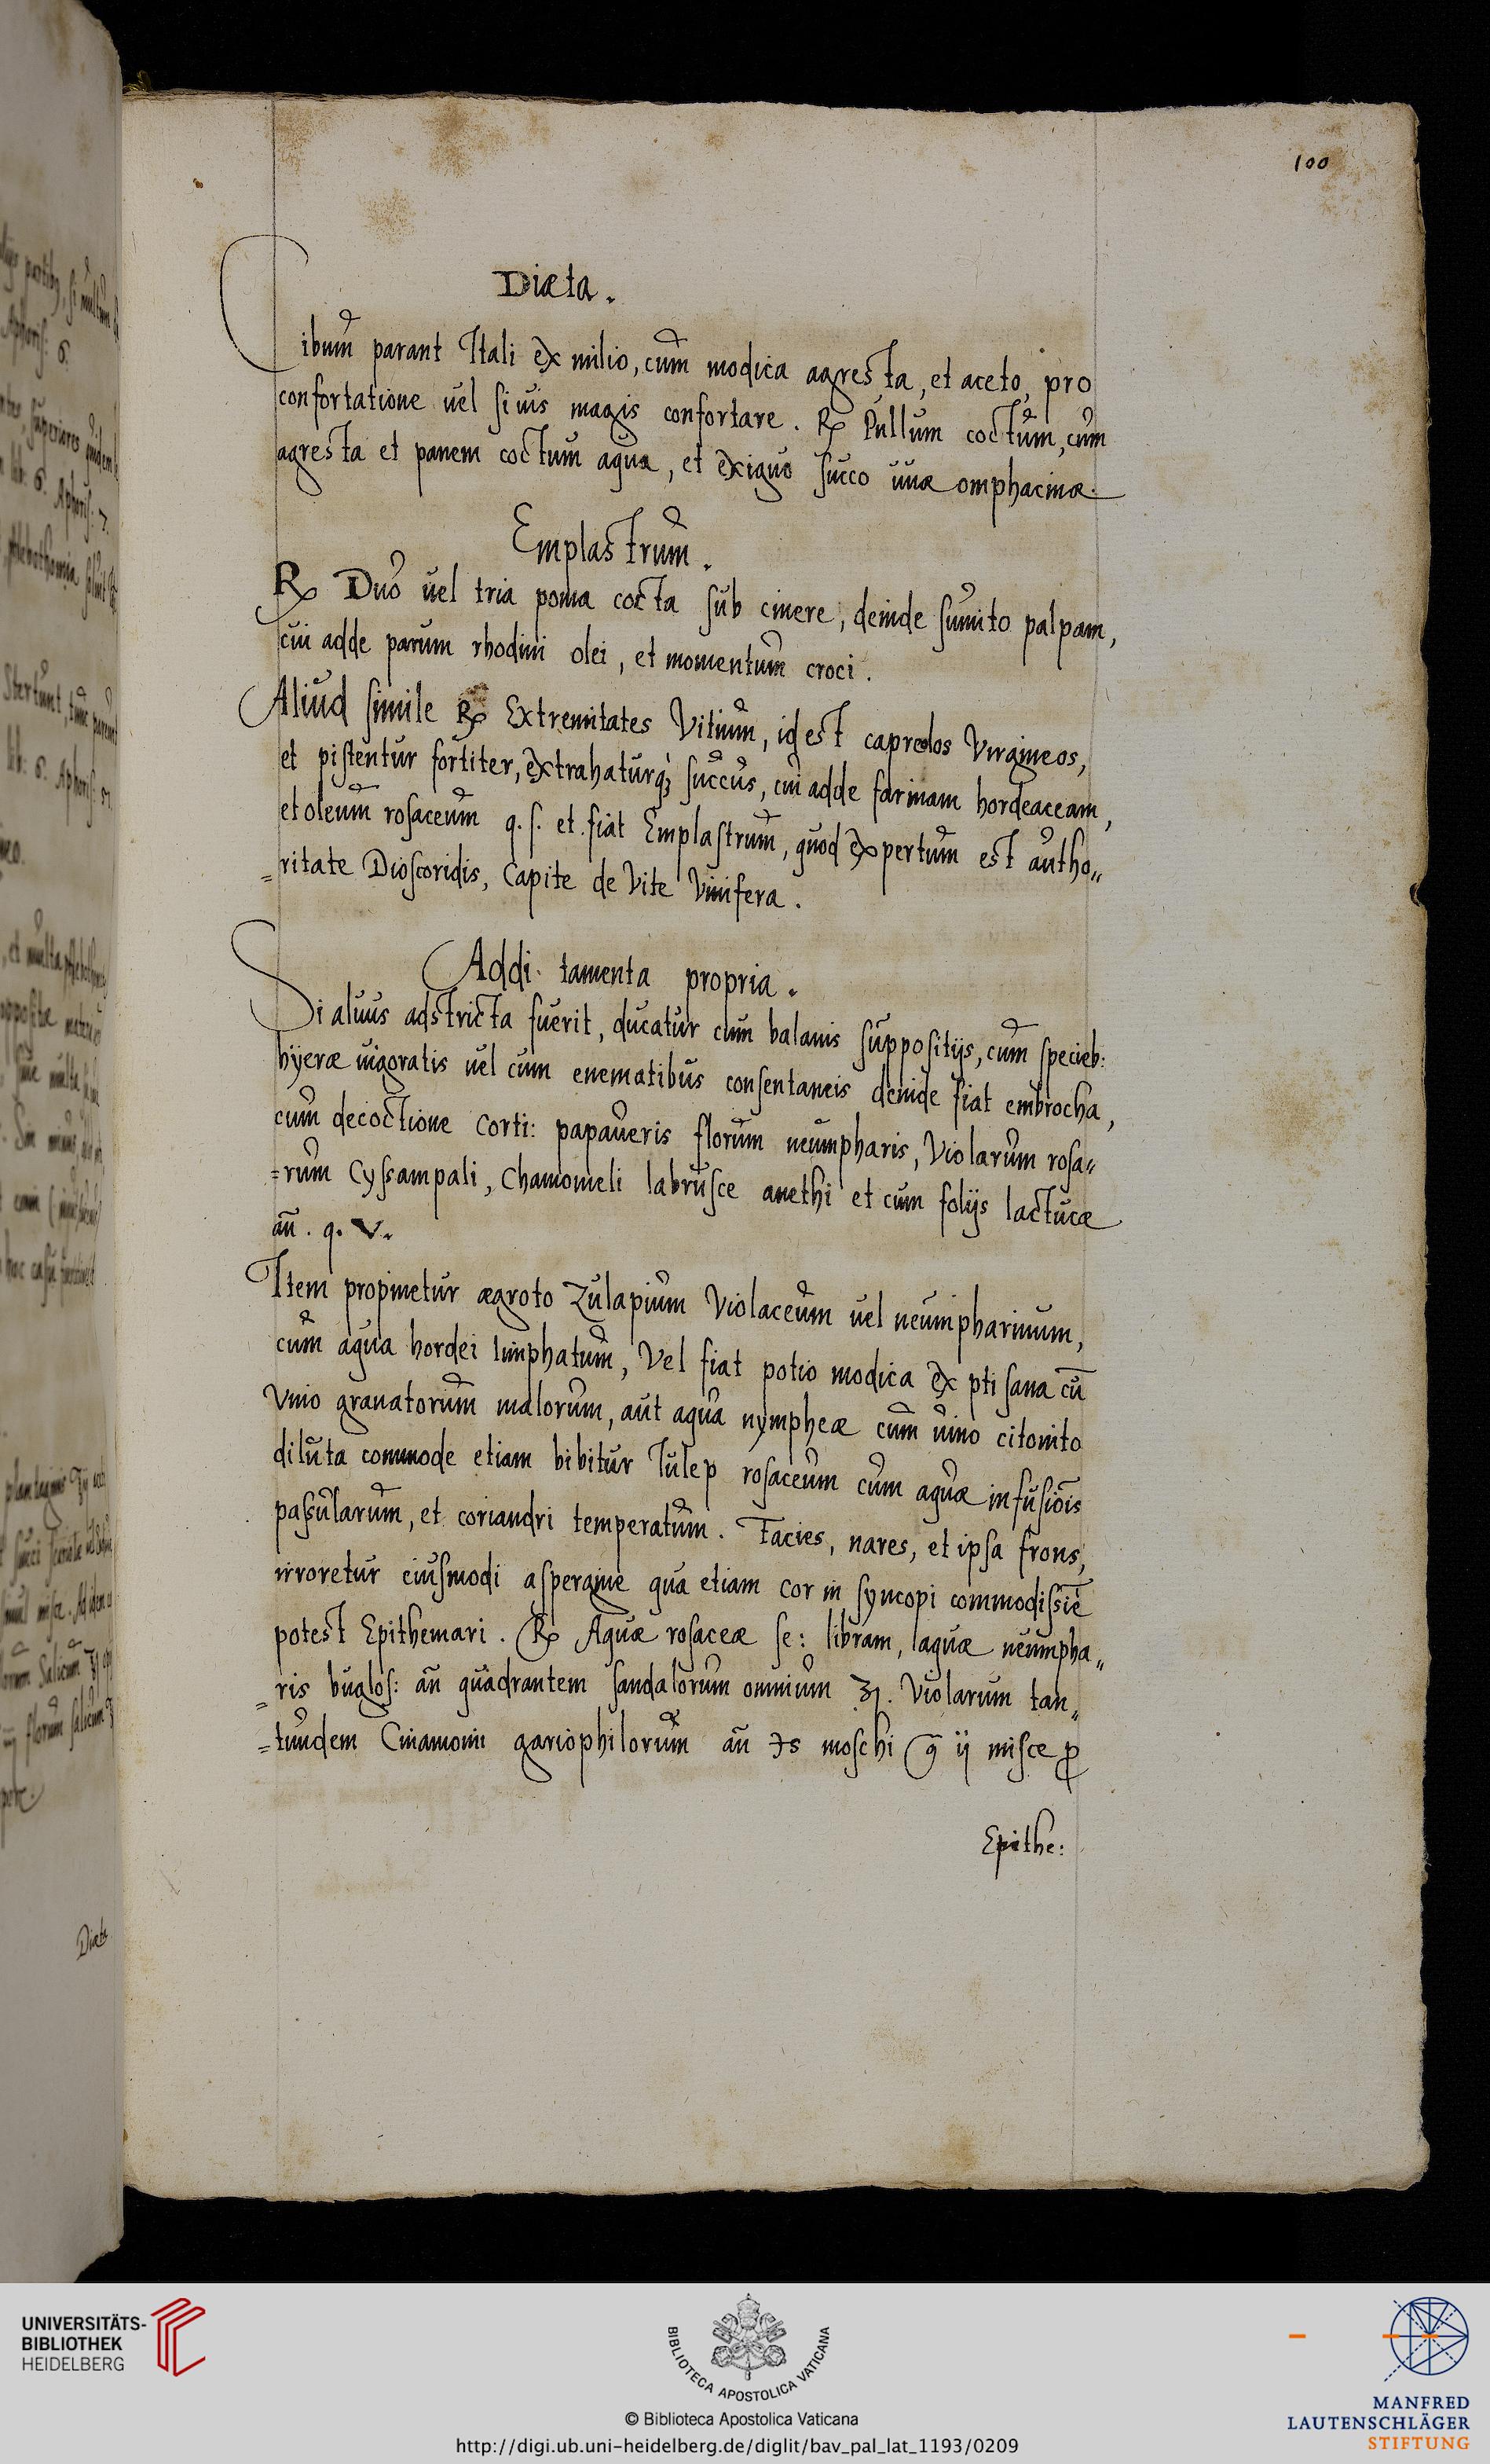 100
Diæta.
Cibum parant Itali ex milio, cum modica agresta, et aceto, pro
confortatione uel si uis magis confortare. ℞ Pullum coctum, cum
agresta et panem coctum aqua, et exiguo succo uuæ omphacinæ.
Emplastrum.
℞ Duo uel tria poma cocta sub cinere, deinde sumito palpam,
cui adde parum rhodini olei, et momentum croci.
Aliud simile ℞ Extremitates Vitium, id est capreolos Virgineos,
et pistentur fortiter, extrahaturq; succus, cui adde farinam hordeaceam,
et oleum rosaceum q. s. et fiat Emplastrum, quod expertum est autho„
=ritate Dioscoridis, Capite de Vite Vinifera.
Addi tamenta propria.
Si aluus adstricta fuerit, ducatur cum balanis suppositijs, cum specieb:
hyeræ uigoratis uel cum enematibus consentaneis deinde fiat embrocha,
cum decoctione corti: papaueris florum neumpharis, Violarum rosa„
=rum Cyssampali, Chamomeli labrusce anethi et cum folijs lactucæ
añ. q. V.
Item propinetur ægroto Zulapium Violaceum uel neumpharinum,
cum aqua hordei limphatum, Vel fiat potio modica ex ptisana cū
Vino granatorum malorum, aut aqua nympheæ cum uino citonito
diluta commode etiam bibitur Iulep rosaceum cum aquæ infusiōis
passularum, et coriandri temperatum. Facies, nares, et ipsa frons,
irroretur eiusmodi aspergine qua etiam cor in syncopi commodissiē
potest Epithemari. ℞ Aquæ rosaceæ se: libram, aquæ neumpha„
=ris buglos: añ quadrantem sandalorum omnium ʒı. Violarum tan„
=tundem Cinamomi gariophilorum añ ℈s moschi g̃ ij misce ꝓ
Epithe:
Diæta
UNIVERSITÄTS-
BIBLIOTHEK
HEIDELBERG
BIBLIOTECA APOSTOLICA VATICANA
© Biblioteca Apostolica Vaticana
http://digi.ub.uni-heidelberg.de/diglit/bav_pal_lat_1193/0209
MANFRED
LAUTENSCHLÄGER
STIFTUNG